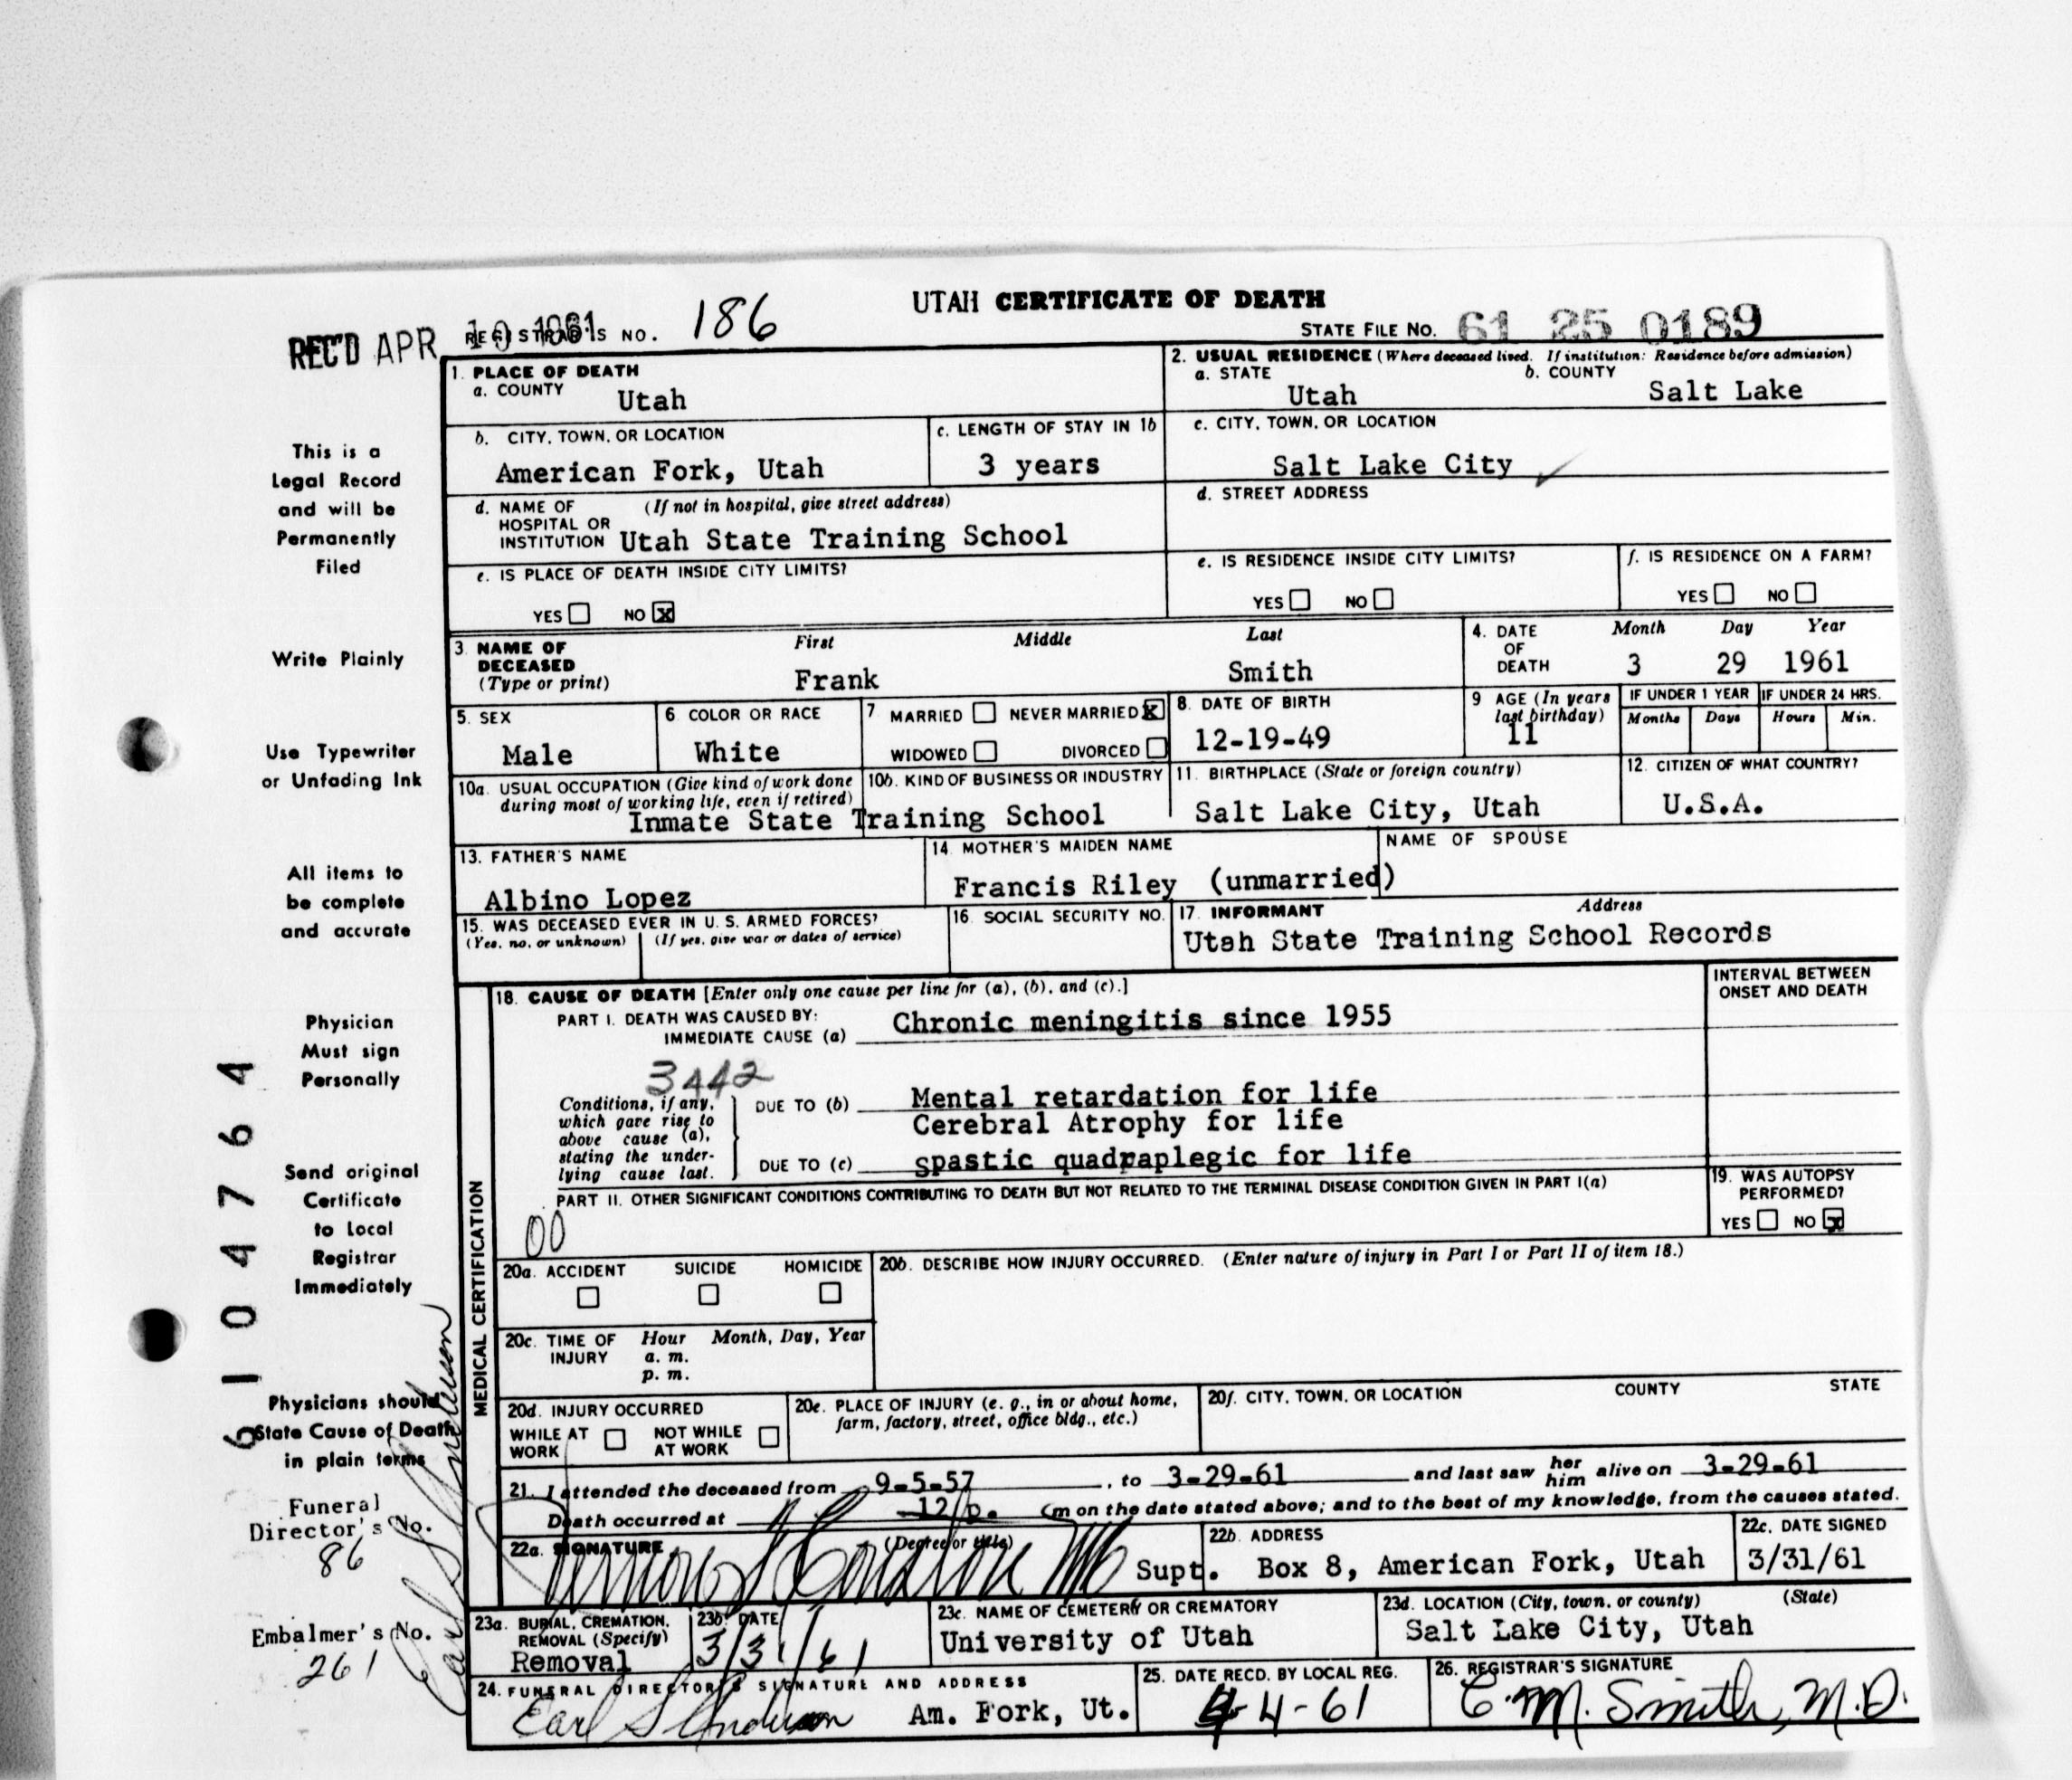 UTAH CERTIFICATE OF DEATH
REC'D APR 10 1961 REGISTRAR'S NO. 186
STATE FILE No. 61 25 0189
1. PLACE OF DEATH
a. COUNTY Utah
2. USUAL RESIDENCE (Where deceased lived. If institution: Residence before admission)
a. STATE Utah b. COUNTY Salt Lake
b. CITY, TOWN, OR LOCATION American Fork, Utah
c. LENGTH OF STAY IN 1b 3 years
c. CITY, TOWN, OR LOCATION Salt Lake City ✓
d. NAME OF HOSPITAL OR INSTITUTION (If not in hospital, give street address) Utah State Training School
d. STREET ADDRESS
e. IS PLACE OF DEATH INSIDE CITY LIMITS?
YES ☐ NO ☒
e. IS RESIDENCE INSIDE CITY LIMITS?
YES ☐ NO ☐
f. IS RESIDENCE ON A FARM?
YES ☐ NO ☐
3. NAME OF DECEASED (Type or print)
First Middle Last
Frank Smith
4. DATE OF DEATH Month Day Year
3 29 1961
5. SEX Male
6 COLOR OR RACE White
7 MARRIED ☐ NEVER MARRIED ☒
WIDOWED ☐ DIVORCED ☐
8. DATE OF BIRTH 12-19-49
9 AGE (In years last birthday) 11
IF UNDER 1 YEAR Months Days
IF UNDER 24 HRS. Hours Min.
10a. USUAL OCCUPATION (Give kind of work done during most of working life, even if retired)
10b. KIND OF BUSINESS OR INDUSTRY
Inmate State Training School
11. BIRTHPLACE (State or foreign country) Salt Lake City, Utah
12. CITIZEN OF WHAT COUNTRY? U.S.A.
13. FATHER'S NAME Albino Lopez
14 MOTHER'S MAIDEN NAME Francis Riley (unmarried)
NAME OF SPOUSE
15. WAS DECEASED EVER IN U. S. ARMED FORCES?
(Yes, no, or unknown) (If yes, give war or dates of service)
16. SOCIAL SECURITY NO.
17. INFORMANT Address
Utah State Training School Records
MEDICAL CERTIFICATION
18. CAUSE OF DEATH [Enter only one cause per line for (a), (b), and (c).]
INTERVAL BETWEEN ONSET AND DEATH
PART I. DEATH WAS CAUSED BY:
IMMEDIATE CAUSE (a) Chronic meningitis since 1955
3442
Conditions, if any, which gave rise to above cause (a), stating the underlying cause last.
DUE TO (b) Mental retardation for life
Cerebral Atrophy for life
DUE TO (c) spastic quadraplegic for life
PART II. OTHER SIGNIFICANT CONDITIONS CONTRIBUTING TO DEATH BUT NOT RELATED TO THE TERMINAL DISEASE CONDITION GIVEN IN PART I(a)
00
19. WAS AUTOPSY PERFORMED?
YES ☐ NO ☒
20a. ACCIDENT SUICIDE HOMICIDE
☐ ☐ ☐
20b. DESCRIBE HOW INJURY OCCURRED. (Enter nature of injury in Part I or Part II of item 18.)
20c. TIME OF INJURY Hour Month, Day, Year
a. m.
p. m.
20d. INJURY OCCURRED
WHILE AT WORK ☐ NOT WHILE AT WORK ☐
20e. PLACE OF INJURY (e. g., in or about home, farm, factory, street, office bldg., etc.)
20f. CITY, TOWN, OR LOCATION COUNTY STATE
21. I attended the deceased from 9-5-57, to 3-29-61 and last saw her him alive on 3-29-61
Death occurred at 12 p. m on the date stated above; and to the best of my knowledge, from the causes stated.
22a. SIGNATURE (Degree or title) Supt.
22b. ADDRESS Box 8, American Fork, Utah
22c. DATE SIGNED 3/31/61
23a. BURIAL, CREMATION, REMOVAL (Specify) Removal
23b. DATE 3/31/61
23c. NAME OF CEMETERY OR CREMATORY University of Utah
23d. LOCATION (City, town, or county) (State) Salt Lake City, Utah
24. FUNERAL DIRECTOR'S SIGNATURE AND ADDRESS
Earl S Anderson Am. Fork, Ut.
25. DATE RECD. BY LOCAL REG. 4-4-61
26. REGISTRAR'S SIGNATURE
C. M. Smith, M.D.
This is a
Legal Record
and will be
Permanently
Filed
Write Plainly
Use Typewriter
or Unfading Ink
All items to
be complete
and accurate
Physician
Must sign
Personally
Send original
Certificate
to Local
Registrar
Immediately
Physicians should
State Cause of Death
in plain terms
Funeral
Director's No.
86
Embalmer's No.
261
Earl S Anderson
6104764